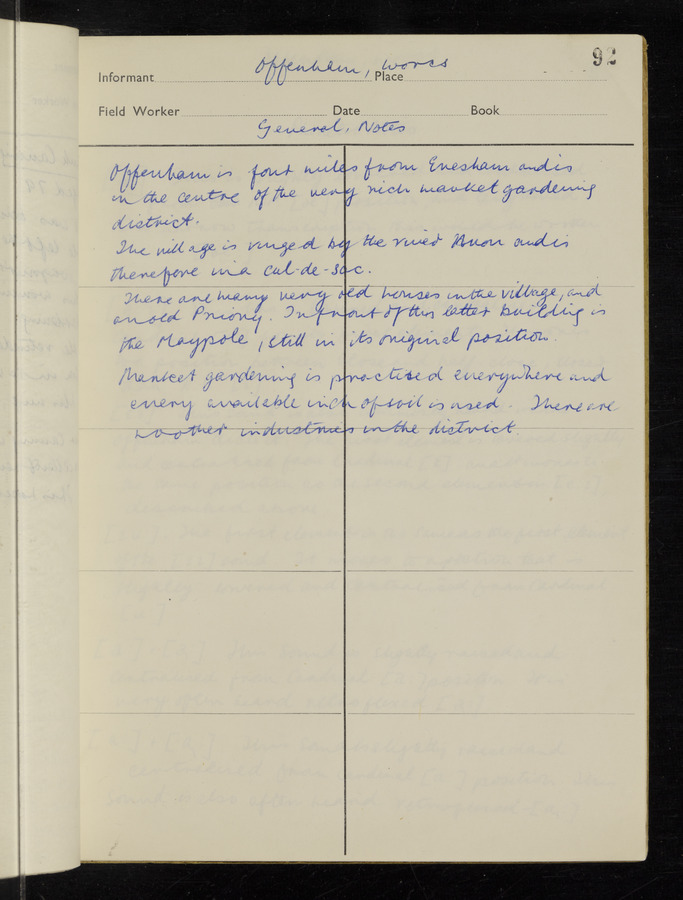 92
Offenham, Worcs
Informant Place
Field Worker Date Book
General, Notes
Offenham is four miles from Evesham and is
in the centre of the very rich market gardening
district.
The village is ringed by the river Avon and is
therefore in a cul-de-sac.
There are many very old houses in the village, and
an old Priory. In front of this latter building is
the Maypole, still in its original position.
Market gardening is practised everywhere and
every available inch of soil is used. There are
no other industries in the district.